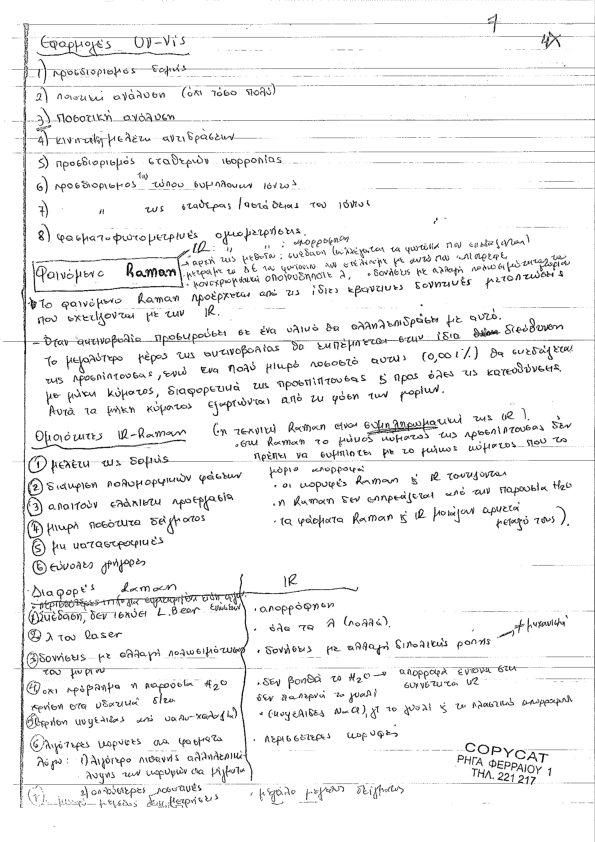 7
4X
Εφαρμογές UV-Vis
1) Προσδιορισμός δομής
2) Ποιοτική ανάλυση (όχι τόσο πολύ)
3) Ποσοτική ανάλυση
4) κινητική μελέτη αντιδράσεων
5) προσδιορισμός σταθερών ισορροπίας
6) προσδιορισμός του τύπου συμπλόκων ιόντων
7) " της σταθεράς / αστάθειας του ιόντος
8) φασματοφωτομετρικές ογκομετρήσεις.
IR: " " : απορρόφηση
Φαινόμενο Raman
• αρχή της μεθόδου: σκέδαση
• μονοχρωματική οποιουδήποτε λ, • δονήσεις με αλλαγή πολωσιμότητας του μορίου
• Το φαινόμενο Raman προέρχεται από τις ίδιες κβαντικές δονητικές μεταπτώσεις
που σχετίζονται με την IR.
- Όταν ακτινοβολία προσκρούσει σε ένα υλικό θα αλληλεπιδράσει με αυτό.
Το μεγαλύτερο μέρος της ακτινοβολίας θα εκπέμπεται στην ίδια διεύθυνση
της προσπίπτουσας, ενώ ένα πολύ μικρό ποσοστό αυτής (0,001%) θα σκεδάζεται
με μήκη κύματος, διαφορετικά της προσπίπτουσας & προς όλες τις κατευθύνσεις.
Αυτά τα μήκη κύματος εξαρτώνται από τη φύση των μορίων.
Ομοιότητες IR-Raman (η τεχνική Raman είναι συμπληρωματική της IR).
• στη Raman το μήκος κύματος της προσπίπτουσας δεν
① μελέτη της δομής πρέπει να συμπίπτει με το μήκος κύματος που το
② διάκριση πολυμορφικών φάσεων μόριο απορροφά
③ απαιτούν ελάχιστη προεργασία • οι κορυφές Raman & IR ταυτίζονται
④ μικρή ποσότητα δείγματος • η Raman δεν επηρεάζεται από την παρουσία H2O
⑤ μη καταστροφικές • τα φάσματα Raman & IR μοιάζουν αρκετά
μεταξύ τους).
⑥ εύκολες γρήγορες
Διαφορές Raman IR
① Σκέδαση, δεν ισχύει L. Beer • απορρόφηση
② λ του laser • όλα τα λ (πολλά).
③ δονήσεις με αλλαγή πολωσιμότητας • δονήσεις με αλλαγή διπολικής ροπής
του μορίου
④ όχι πρόβλημα η παρουσία H2O • δεν βοηθά το H2O → απορροφά έντονα στη
χρήση στα υδατικά δ/τα συχνότητα IR
δεν διαπερνά το γυαλί
⑤ χρήση κυψελίδας από γυαλί-χαλαζία • (κυψελίδες NaCl), γτ το γυαλί & το πλαστικό απορροφά
⑥ λιγότερες κορυφές στα φάσματα • περισσότερες κορυφές
λόγω: 1) λιγότερο πιθανής αλληλεπικά-
λυψης των κορυφών στα μίγματα
⑦ μικρό μέγεθος • μεγάλο μέγεθος δείγματος
COPYCAT
ΡΗΓΑ ΦΕΡΡΑΙΟΥ 1
ΤΗΛ. 221 217